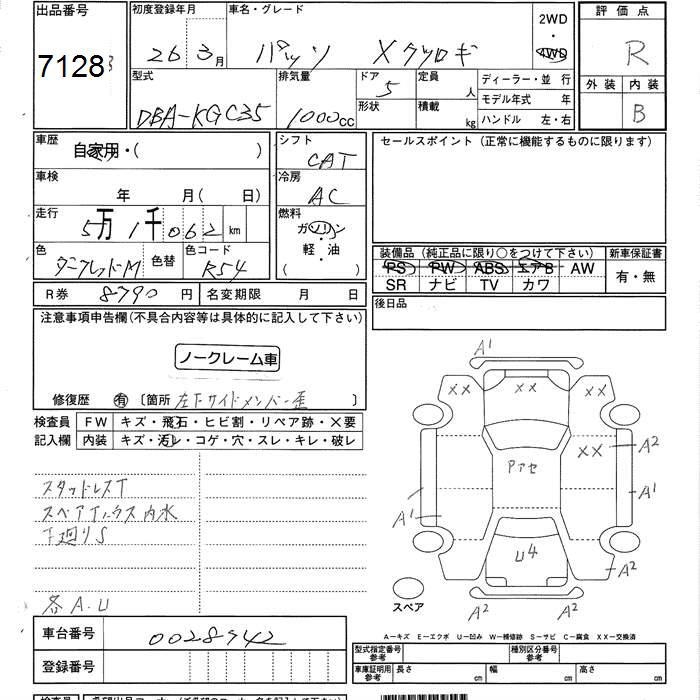 出品番号
7128
初度登録年月
26 3月
車名・グレード
パッソ Xクツロギ
2WD
・
4WD
評価点
R
外装 内装
B
型式
DBA-KGC35
排気量
1000cc
ドア
5
形状
定員
人
積載
kg
ディーラー・並 行
モデル年式 年
ハンドル 左・右
車歴
自家用・( )
シフト
CAT
車検
年 月(日)
冷房
AC
走行
5万1千062km
燃料
ガソリン
軽・油
( )
色
色替
色コード
R54
R券 8790円
名変期限 月 日
セールスポイント (正常に機能するものに限ります)
装備品 (純正品に限り○をつけて下さい)
新車保証書
PS PW ABS エアB AW
SR ナビ TV カワ
有・無
後日品
注意事項申告欄(不具合内容等は具体的に記入して下さい)
ノークレーム車
修復歴 有 〔箇所 左下サイドメンバー歪 〕
検査員
記入欄
FW キズ・飛石・ヒビ割・リペア跡・×要
内装 キズ・汚レ・コゲ・穴・スレ・キレ・破レ
スタッドレスT
スペアTハウス内水
下廻りS
各A.U
A1
XX XX XX
XX A2
Pアセ
A1 A1
U4
A2
A2 A2
スペア
A-キズ E-エクボ U-凹み W-補修跡 S-サビ C-腐食 XX-交換済
車台番号 0028942
登録番号
型式指定番号
参考
種別区分番号
参考
車庫証明用
参考
長さ cm 幅 cm 高さ cm